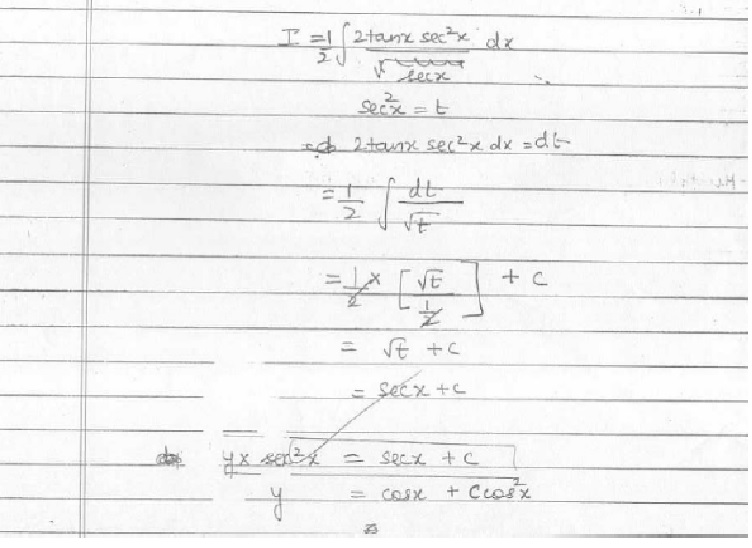 I = 1/2 ∫ 2tanx sec²x / secx dx
sec²x = t
2tanx sec²x dx = dt
= 1/2 ∫ dt/√t
= 1/2 × [√t / 1/2] + c
= √t + c
= secx + c
y x sec²x = secx + c
y = cosx + Ccos²x